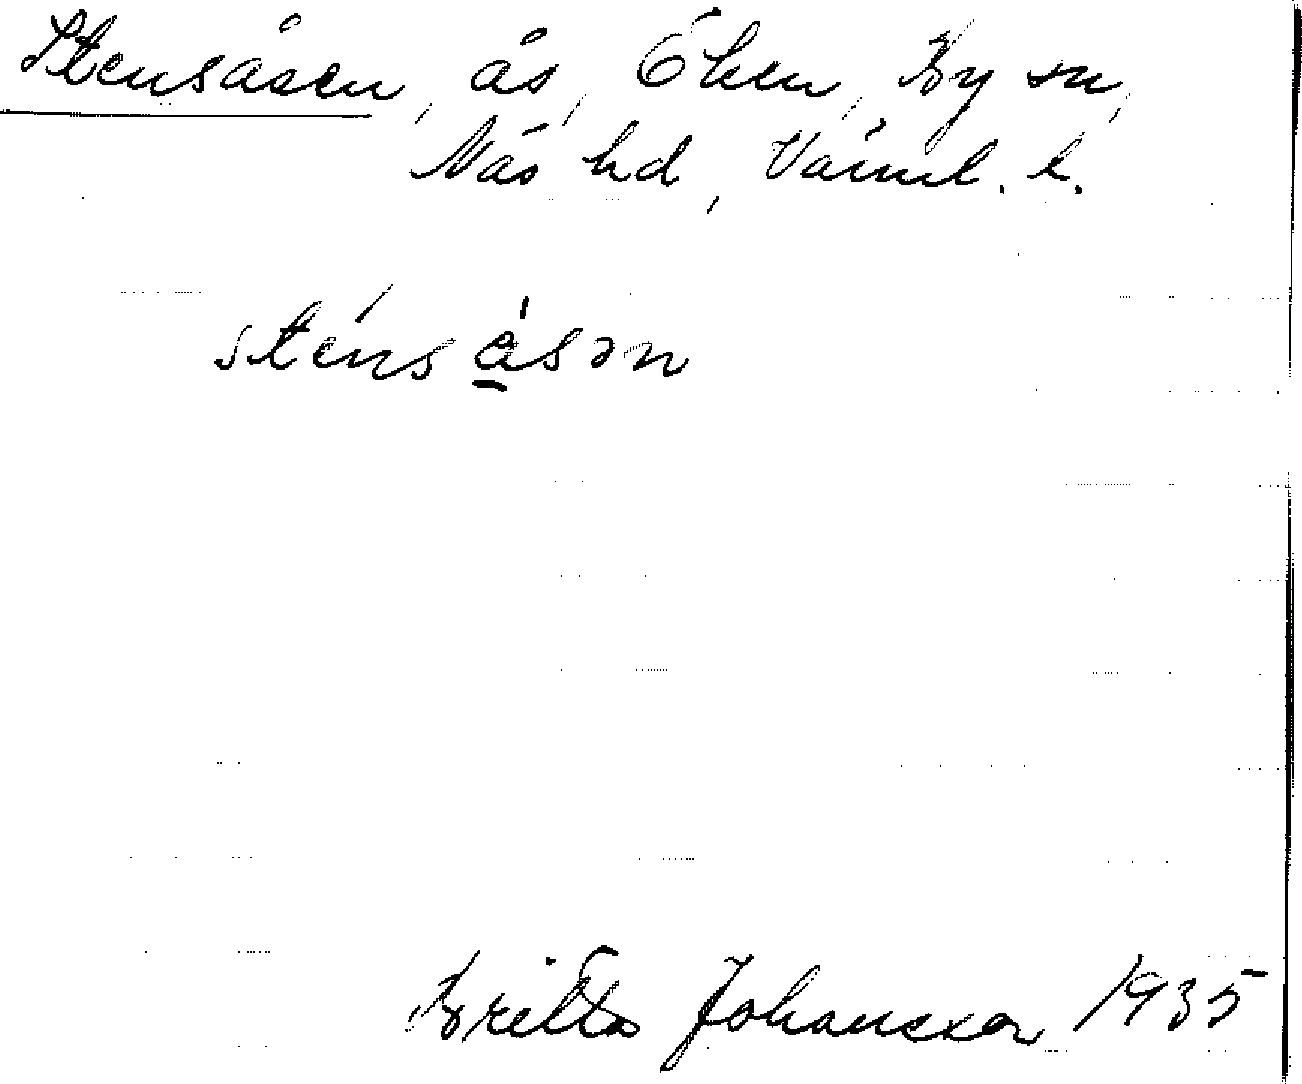 Stensåsen, ås, Öken, By sn,
Näs hd, Värml. l.
sténsåsən
Britta Johansson 1935